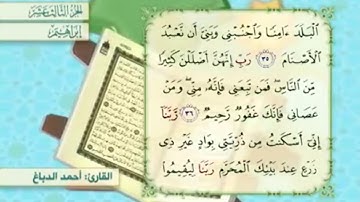 الجزء الثالث عشر
إبراهيم
ٱلْبَلَدَ ءَامِنًا وَٱجْنُبْنِى وَبَنِىَّ أَن نَّعْبُدَ
ٱلْأَصْنَامَ ٣٥ رَبِّ إِنَّهُنَّ أَضْلَلْنَ كَثِيرًا
مِّنَ ٱلنَّاسِ ۖ فَمَن تَبِعَنِى فَإِنَّهُۥ مِنِّى ۖ وَمَنْ
عَصَانِى فَإِنَّكَ غَفُورٌ رَّحِيمٌ ٣٦ رَّبَّنَآ
إِنِّىٓ أَسْكَنتُ مِن ذُرِّيَّتِى بِوَادٍ غَيْرِ ذِى
زَرْعٍ عِندَ بَيْتِكَ ٱلْمُحَرَّمِ رَبَّنَا لِيُقِيمُوا۟
القارئ: أحمد الدباغ